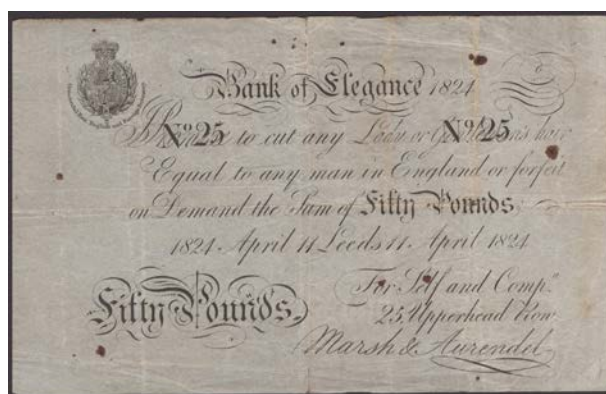 Bank of Elegance 1824
I Promise to cut any Lady or Gentleman's hair
No 25 No 25
Equal to any man in England or forfeit
on Demand the Sum of Fifty Pounds
1824 April 11 Leeds 11 April 1824
For Self and Compy
Fifty Pounds
25, Upperhead Row
Marsh & Aurendel